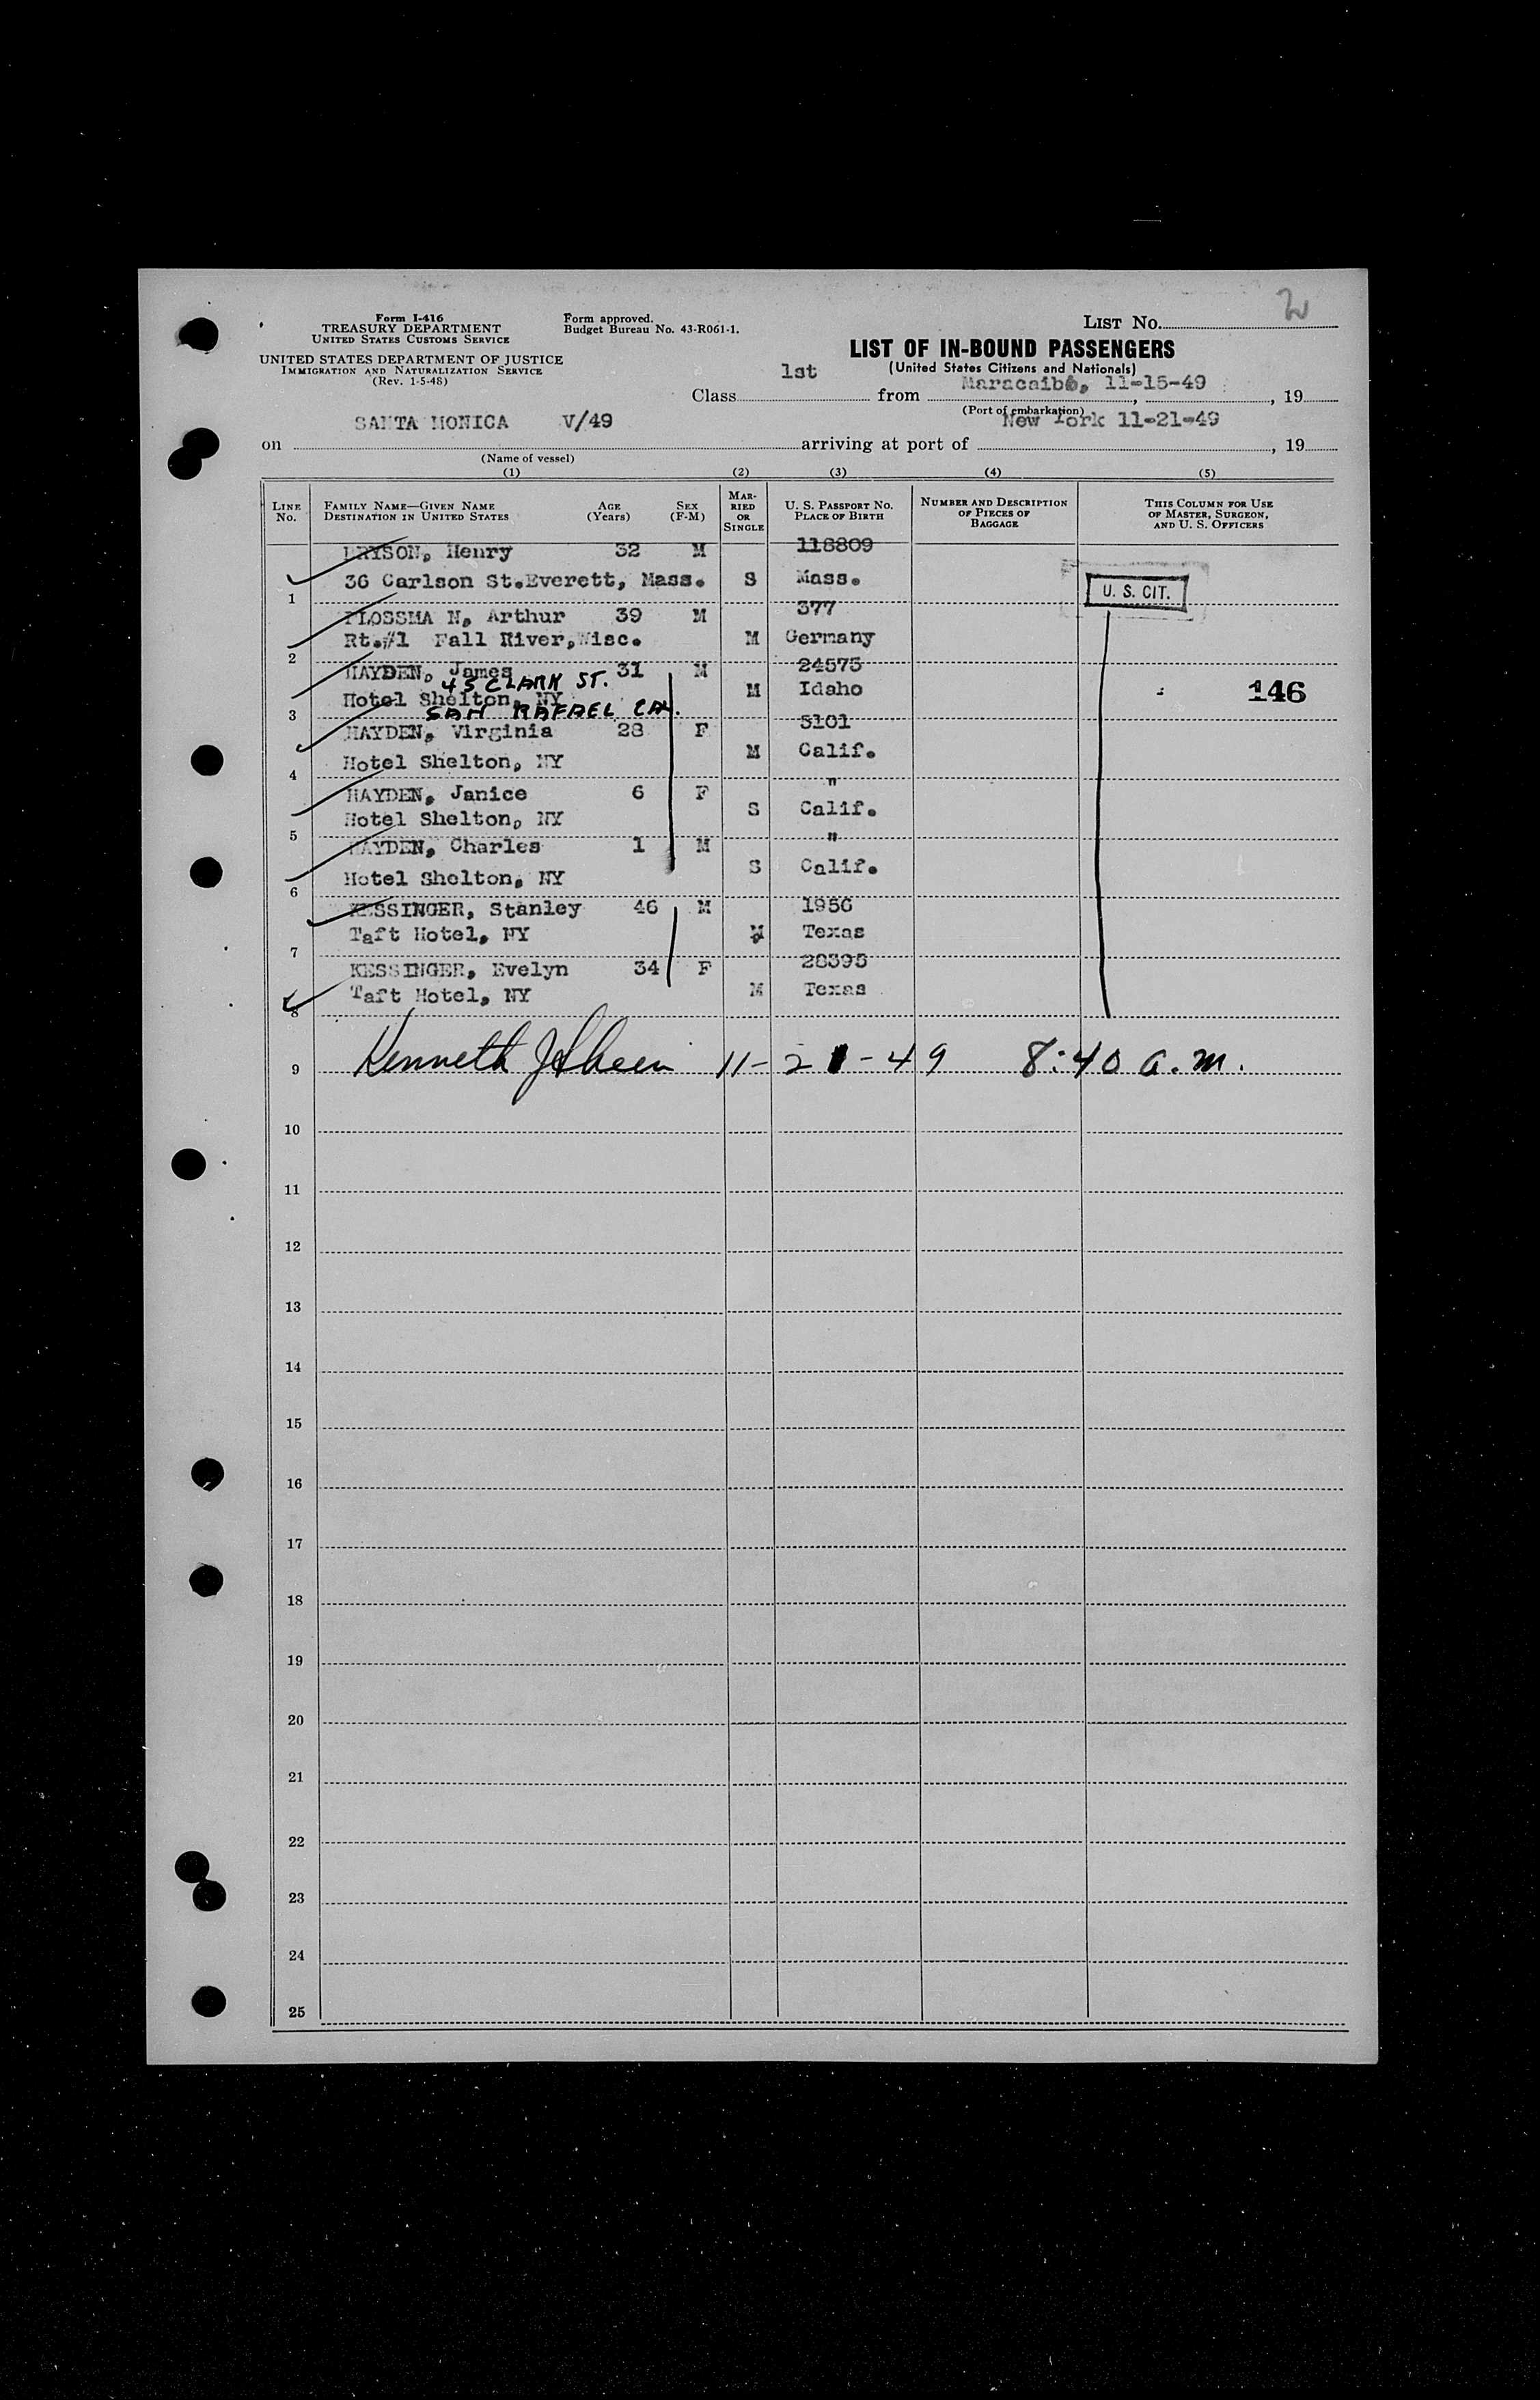 2
Form I-416
TREASURY DEPARTMENT
UNITED STATES CUSTOMS SERVICE
Form approved.
Budget Bureau No. 43-R061-1.
LIST No.
UNITED STATES DEPARTMENT OF JUSTICE
IMMIGRATION AND NATURALIZATION SERVICE
(Rev. 1-5-48)
LIST OF IN-BOUND PASSENGERS
(United States Citizens and Nationals)
Class 1st from Maracaibo, 11-15-49, 19
(Port of embarkation)
on SANTA MONICA V/49 arriving at port of New York 11-21-49, 19
(Name of vessel)
(1) (2) (3) (4) (5)
LINE No. FAMILY NAME—GIVEN NAME DESTINATION IN UNITED STATES AGE (Years) SEX (F-M) MARRIED OR SINGLE U. S. PASSPORT No. PLACE OF BIRTH NUMBER AND DESCRIPTION OF PIECES OF BAGGAGE THIS COLUMN FOR USE OF MASTER, SURGEON, AND U. S. OFFICERS
Henry 32 M 118809
1 36 Carlson St.Everett, Mass. S Mass. U. S. CIT.
PLOSSMA N, Arthur 39 M 377
2 Rt.#1 Fall River,Wisc. M Germany
HAYDEN, James 31 M 24573
45 CLARK ST.
3 Hotel Shelton, NY M Idaho 146
SAN RAFAEL CAL.
HAYDEN, Virginia 28 F 5101
4 Hotel Shelton, NY M Calif.
HAYDEN, Janice 6 F "
5 Hotel Shelton, NY S Calif.
HAYDEN, Charles 1 M "
6 Hotel Shelton, NY S Calif.
KESSINGER, Stanley 46 M 1956
7 Taft Hotel, NY M Texas
KESSINGER, Evelyn 34 F 28395
8 Taft Hotel, NY M Texas
9 Kenneth 11-21-49 8:40 a.m.
10
11
12
13
14
15
16
17
18
19
20
21
22
23
24
25